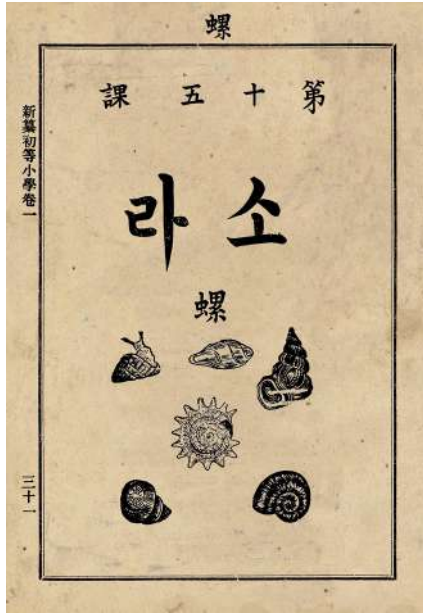 螺
第十五課
소라
螺
新纂初等小學卷一
三十一